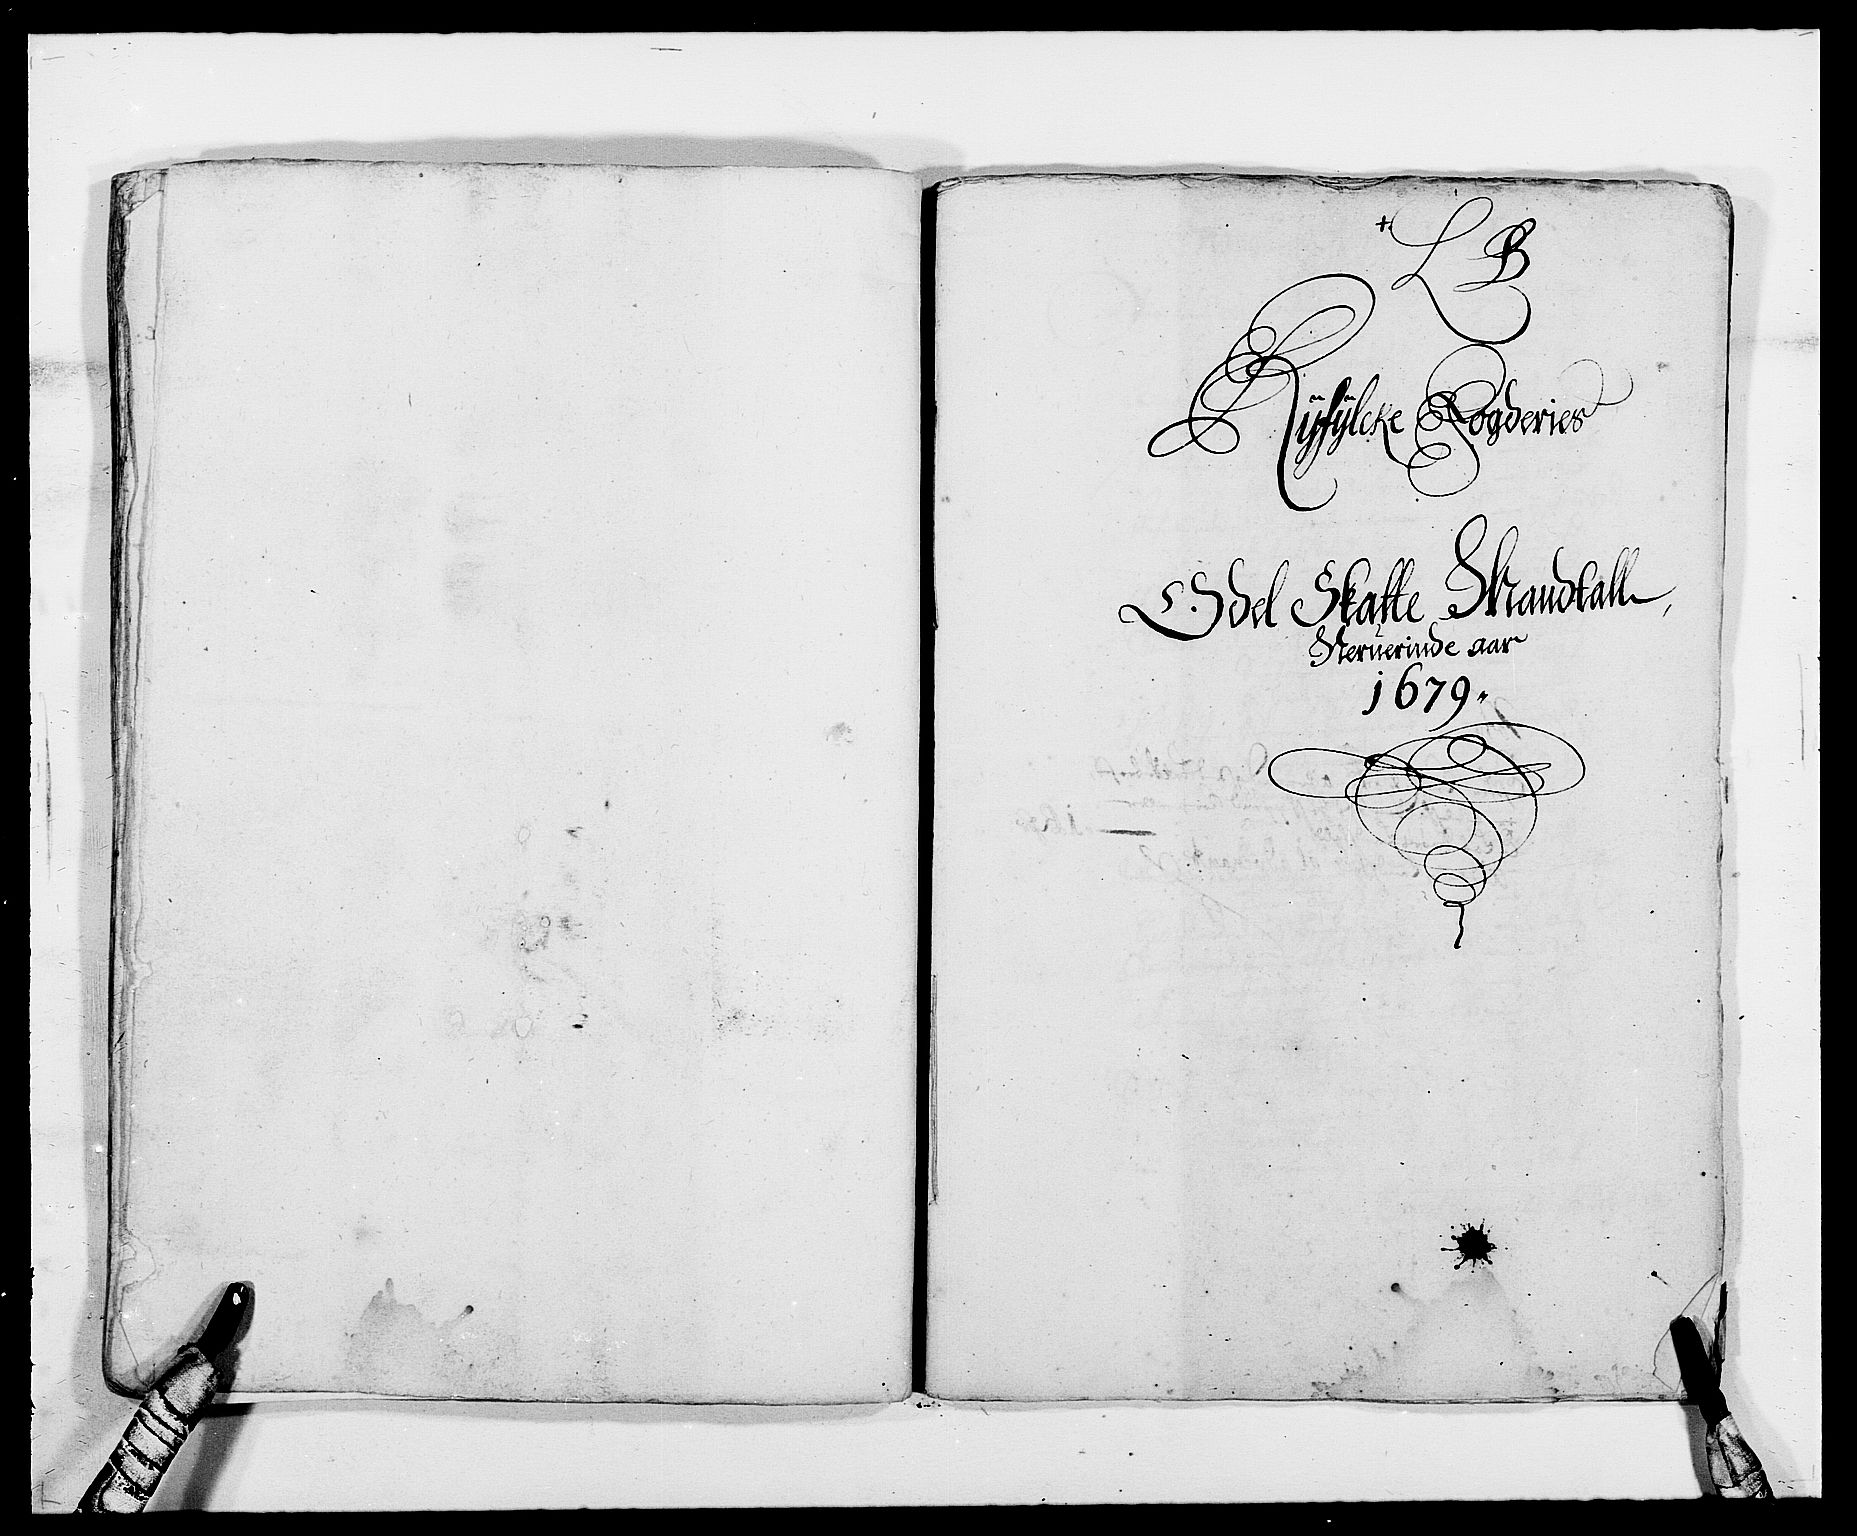 + L B
Ryfylcke Fogderies
Odel Skatte Mandtall,
Neruerinde aar
1679.